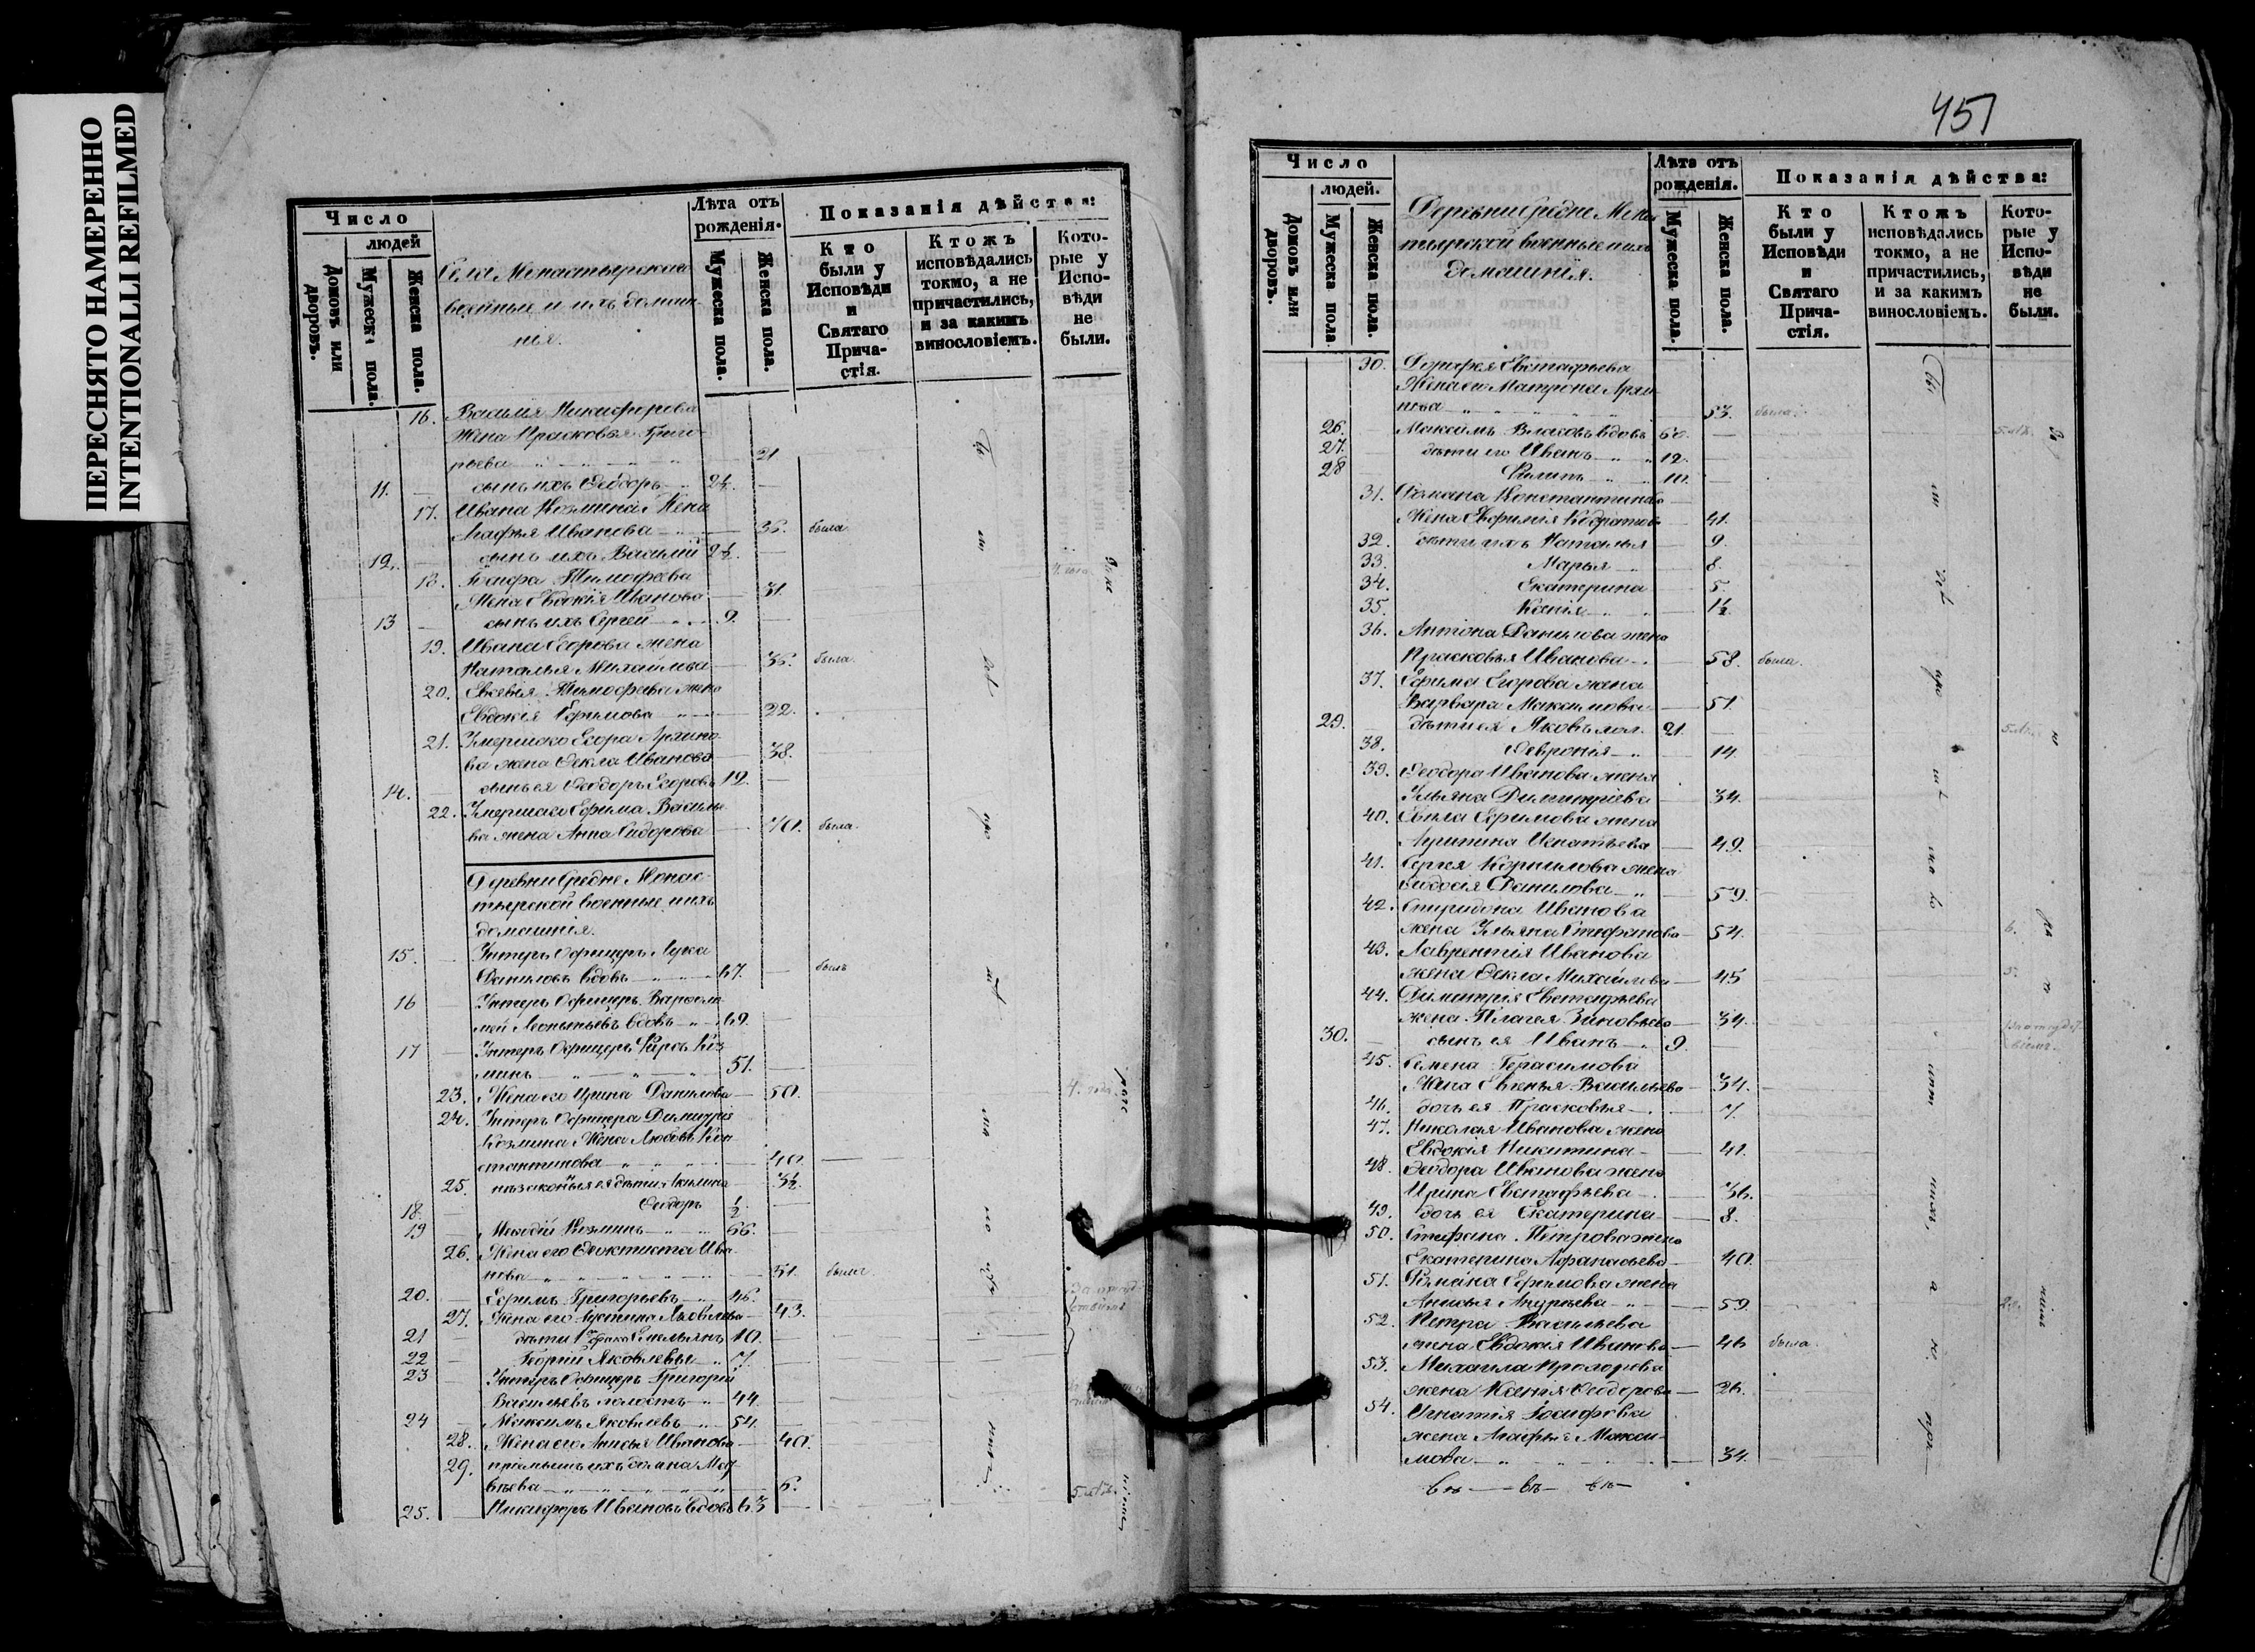 ПЕРЕСНЯТО НАМЕРЕННО
INTENTIONALLI REFILMED
Число
людей
Домовъ или дворовъ.
Мужеска пола.
Женска пола.
Села Монастырскаго
военныя и ихъ домаш-
нія.
Лѣта отъ рожденія.
Мужеска пола.
Женска пола.
Показанія дѣйства:
Кто были у Исповѣди и Святаго Прича-стія.
Ктожъ исповѣдались токмо, а не причастились, и за какимъ винословіемъ.
Кото-рые у Испо-вѣди не были.
16. Василія Никифорова
жена Прасковья Григо-
рьева 21
11. сынъ ихъ Ѳеодоръ 2½.
17. Ивана Козмина жена
Агафья Иванова 36. была
12. сынъ ихъ Василій 2½.
18. Тимофеева
жена Иванова 31.
13 сынъ ихъ Сергей 9.
19. Ивана Егорова жена
Наталья Михайлова 36. была.
20. Евсевія Тимофеева жена
Евдокія Ефимова 22.
21. Умершаго Егора Архипо-
ва жена Ѳекла Иванова 38.
14. сынъ ея Ѳеодоръ Егоровъ 12.
22. Умершаго Ефима Василье-
ва жена Анна Сидорова 70. была.
Деревни Средне Монас-
тырской военные и ихъ
домашнія.
15. Унтеръ Офицеръ Лука
Даниловъ вдовъ 67. былъ
16 Унтеръ Офицеръ Варѳоло-
мей Леонтьевъ вдовъ 69.
17 Унтеръ Офицеръ Коз-
минъ 51.
23. Жена его Ирина Данилова 50. 4. года.
24. Унтеръ Офицера Димитрія
Козмина жена Любовь Кон-
стантинова 40.
25. незаконныя ея дѣти 3½.
18. Ѳеодоръ ½
19 Козминъ 66.
26. Жена его Ѳеоктиста Ива-
нова 51. была
20. Ефимъ Григорьевъ 46.
27. Жена его Яковлева 43.
21 дѣти Емельянъ 10.
22 Георгій Яковлевы 7.
23 Унтеръ Офицеръ Григорій
Васильевъ холостъ 44.
24 Максимъ Яковлевъ 54.
28. Жена его Анисья Иванова 40.
29. пріемышъ ихъ
6.
25. Никифоръ Ивановъ вдовъ 63
451
Число
людей.
Домовъ или дворовъ.
Мужеска пола.
Женска пола.
Деревни Средне Монас-
тырской военные и ихъ
домашнія.
Лѣта отъ рожденія.
Мужеска пола.
Женска пола.
Показанія дѣйства:
Кто были у Исповѣди и Святаго Прича-стія.
Ктожъ исповѣдались токмо, а не причастились, и за какимъ винословіемъ.
Кото-рые у Испо-вѣди не были.
30. Дорофея Евстафьева
жена его Матрона Архи-
пова 53. была.
26. Максимъ Власовъ вдовъ 60.
27. дѣти его Иванъ 12.
28 Филипъ 10.
31. Романа Константинова
жена Евфимія 41.
32. дѣти ихъ Наталья 9.
33. Марья 8.
34. Екатерина 5.
35. Ксенія 1½.
36. Антона Данилова жена
Прасковья Иванова 58. была.
37. Ефима Егорова жена
Варвара Максимова 51.
29. дѣти ея Яковъ хол. 21.
38. Ѳевронія 14.
39. Ѳеодора Иванова жена
Ульяна Димитріева 34.
40. Ефимова жена
Агрипина Игнатьева 49.
41. Сергея Корнилова жена
Ѳеодосія Данилова 59.
42. Спиридона Иванова
жена Ульяна Стефанова 54. 6.
43. Лаврентія Иванова
жена Ѳекла Михайлова 45 5.
44. Димитрія Евстафьева
жена Пелагея Зиновьева 34.
30. сынъ ея Иванъ 9.
45. Семена Герасимова
жена Евгенья Васильева 34.
46. дочь ея Прасковья 7.
47. Николая Иванова жена
Евдокія Никитина 41.
48. Ѳеодора Иванова жена
Ирина Евстафьева 36.
49. дочь ея Екатерина 8.
50. Стефана Петрова жена
Екатерина Афанасьева 40.
51. Романа Ефимова жена
Анисья 59.
52. Петра Васильева
жена Евдокія Иванова 46 была.
53. Михаила Прохорова
жена Ксенія Ѳеодорова 26.
54. Игнатія Іосифова
жена Агафья Макси-
мова 34.